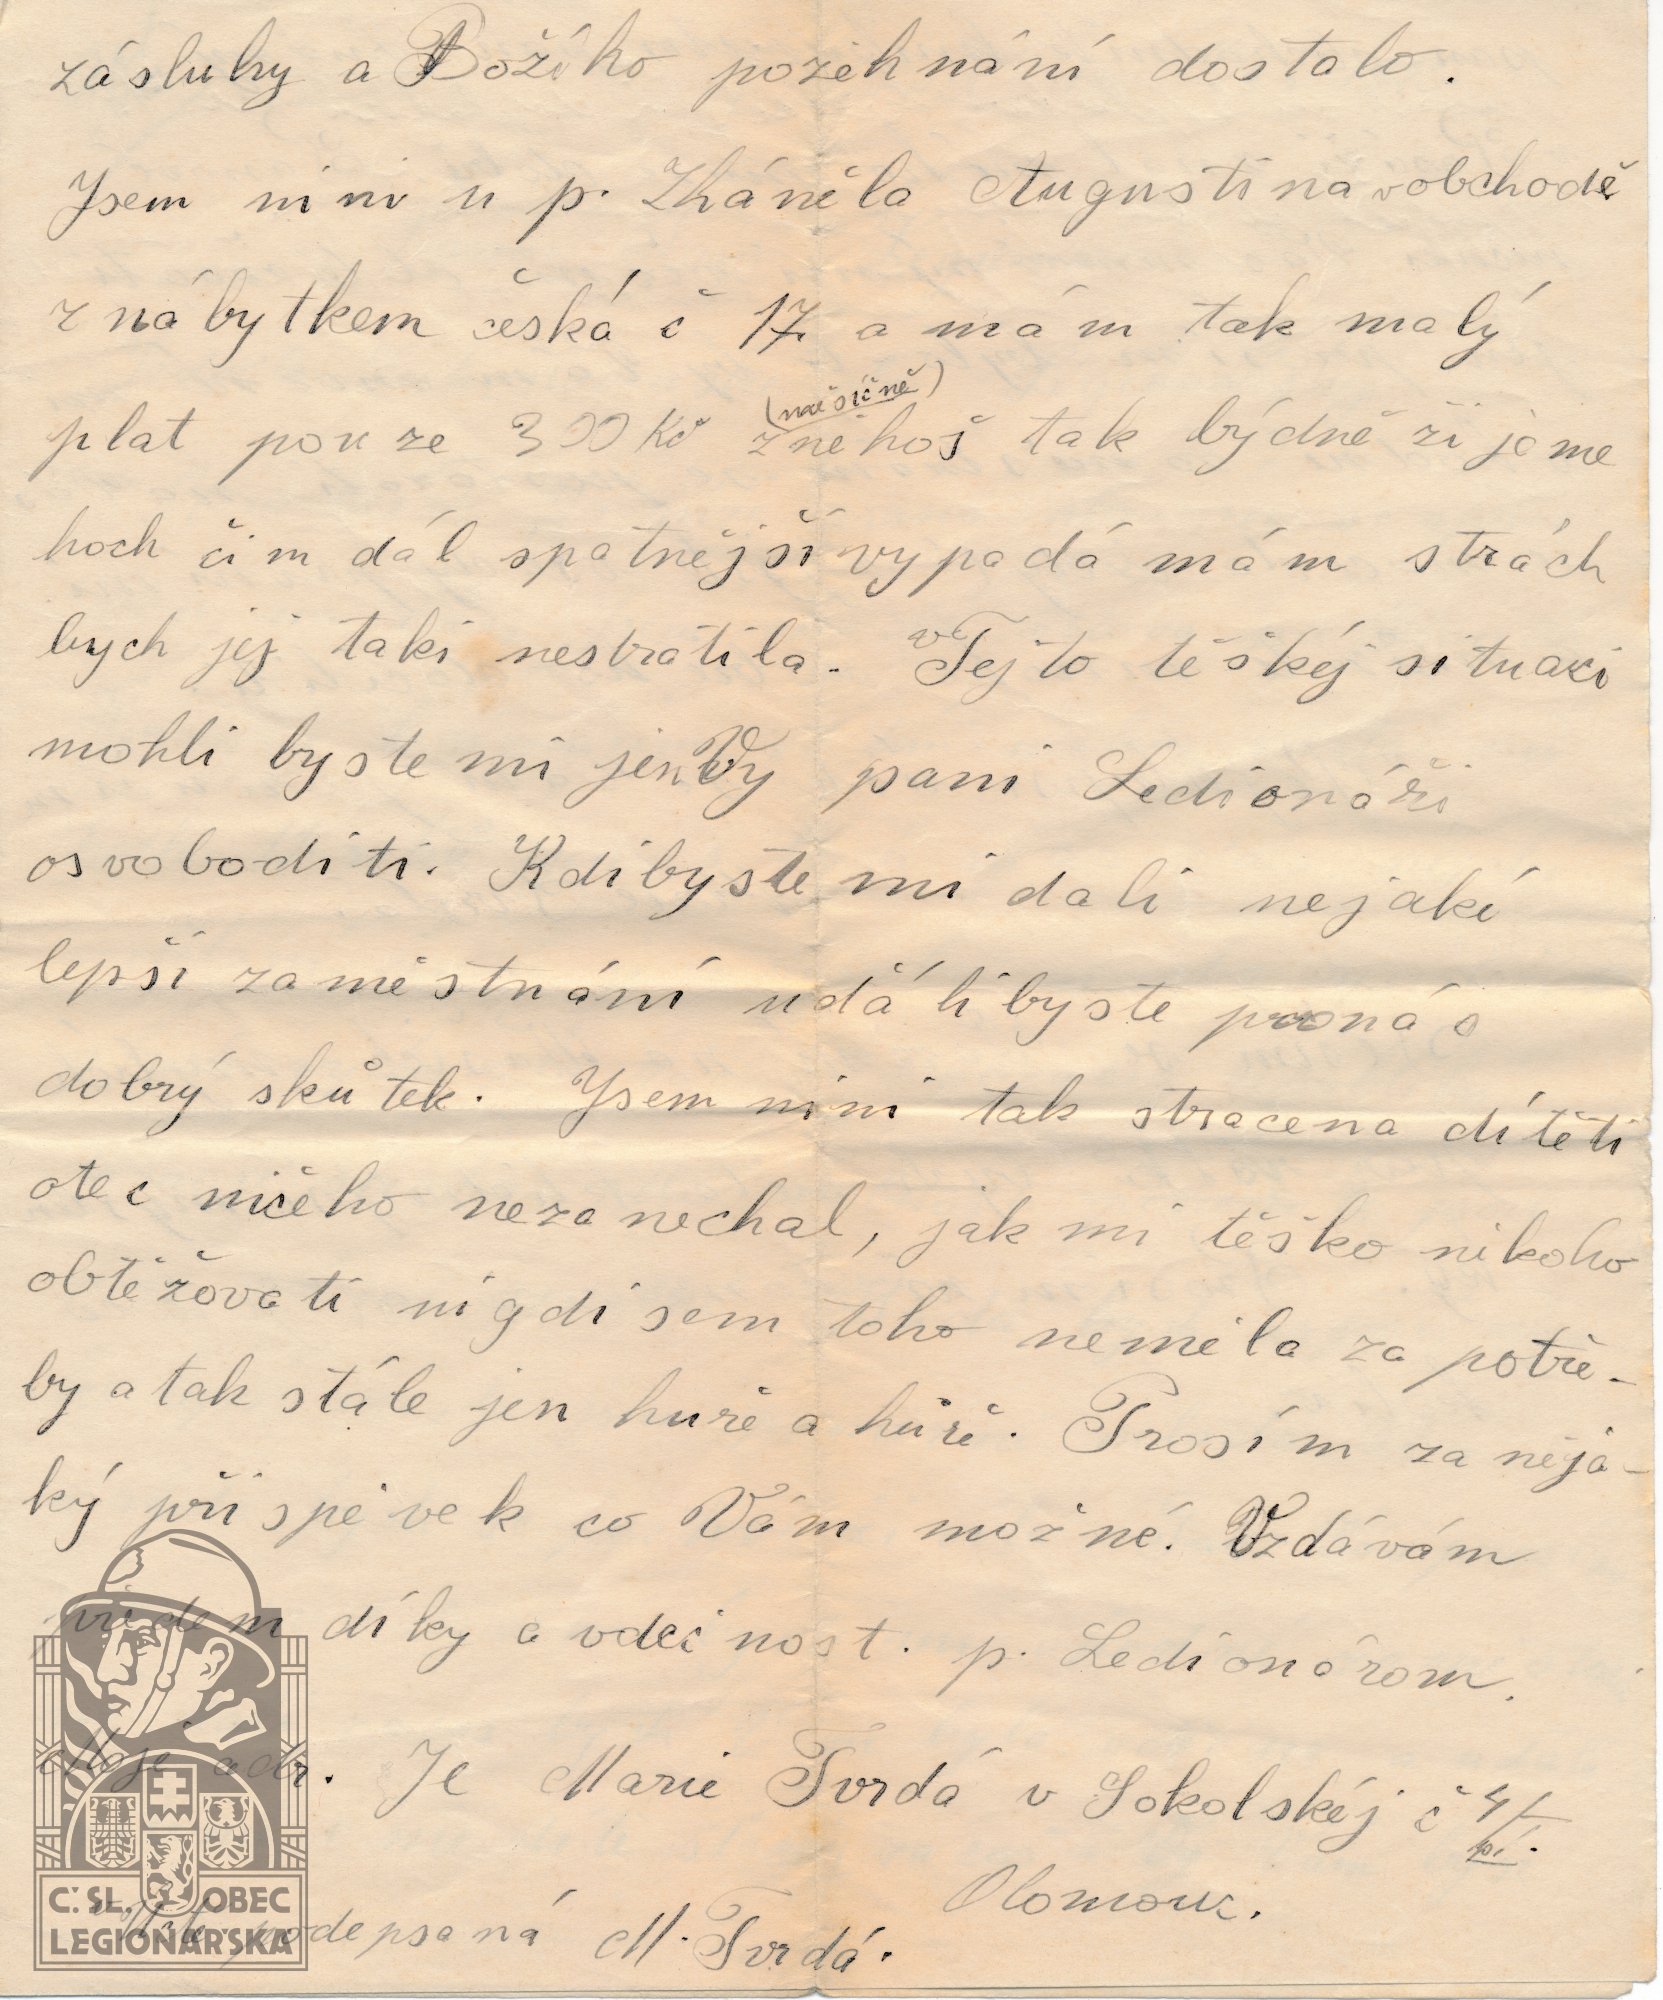 zásluhy a Božího požehnání dostalo.
Jsem nini u p. Zháněla Augustina v obchodě
z nábytkem česká č 17. a mám tak malý
(měsíčně)
plat pouze 300 Kč z něhoš tak býdně žijeme
hoch čim dál spatnější vypadá mám strách
bych jej taki nestratila. v Tejto těškéj situaci
mohli byste mi jen Vy pani Ledionáři
osvoboditi. Kdibyste mi dali nejaké
lepší zaměstnání uďálibyste pronás
dobrý skůtek. Jsem nini tak stracena dítěti
otec ničeho nezanechal, jak mi těško nikoho
obtěžovati nigdi sem toho neměla za potře-
by a tak stále jen huře a hůře. Prosím za něja-
ký přispěvek co Vám možné. Vzdávám
předem díky a vdečnost. p. Ledionárom.
Moje adr. Je Marie Tvrdá v Sokolskéj č 4/I
př.
Olomouc.
Vůcte podepsaná M. Tvrdá.
Č. SL. OBEC
LEGIONÁŘSKÁ